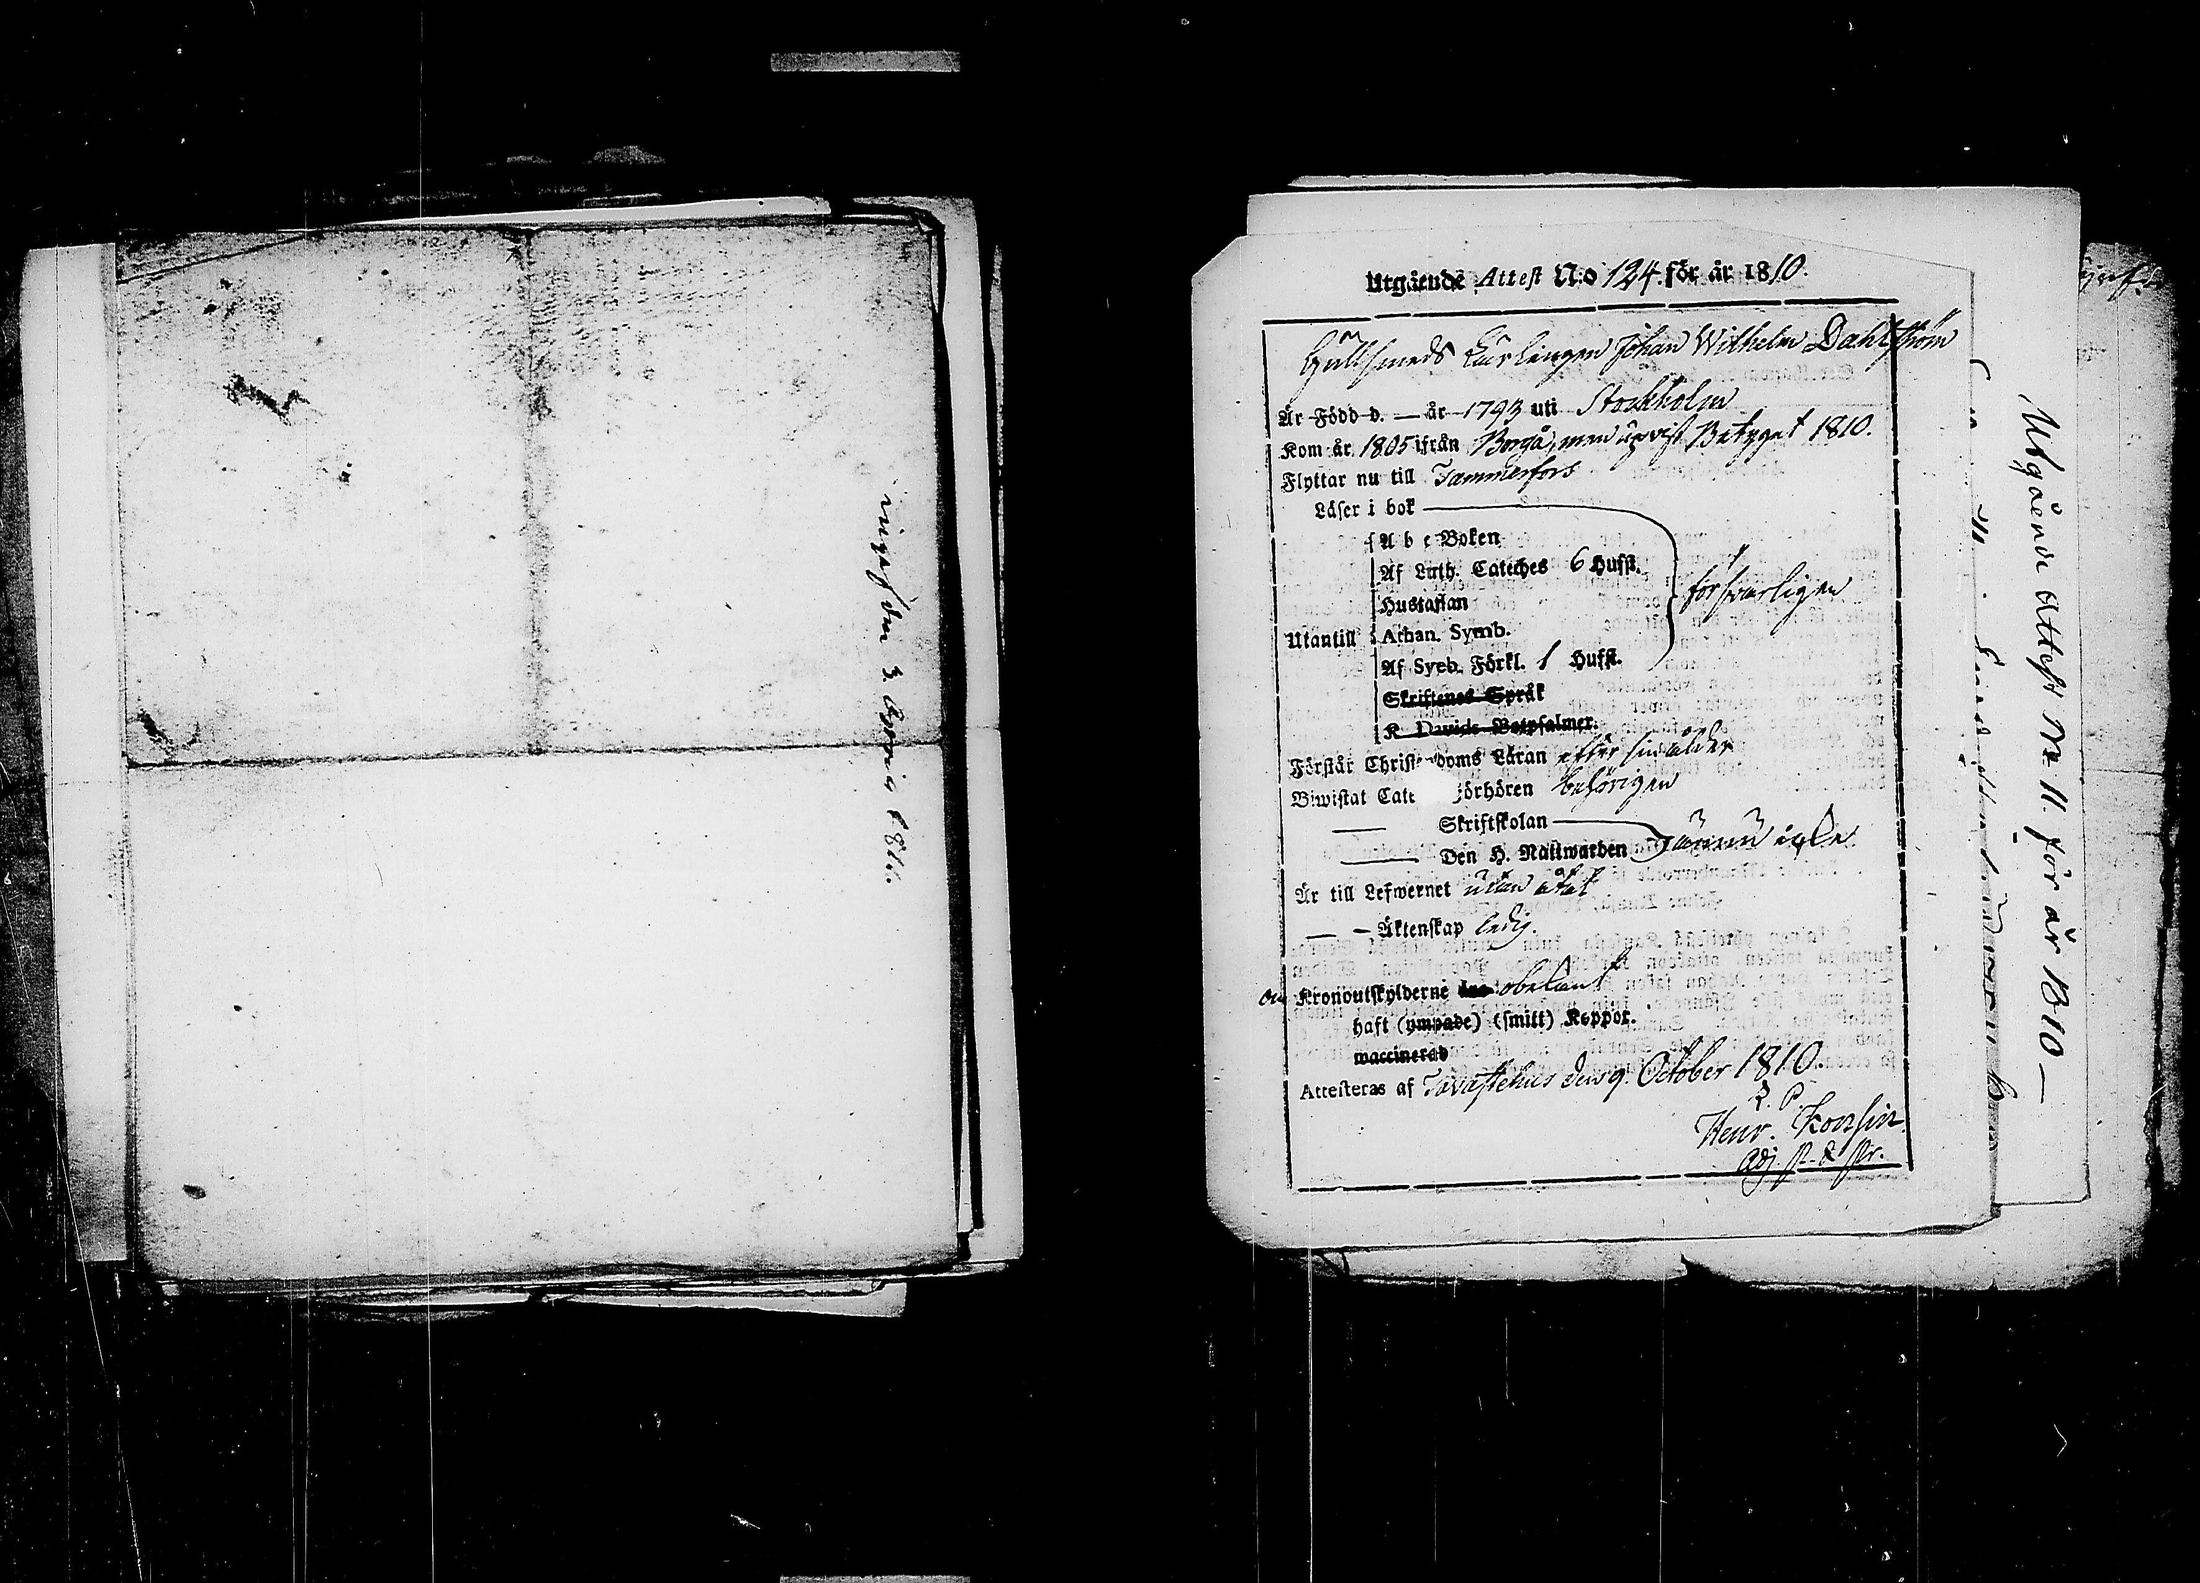 Utgående Attest N:o 124. för år 1810.
Gullsmeds Lärlingen Johan Wilhelm Dahlström
Är Född d. — år 1793 uti Stockholm
Kom år 1805 ifrån Borgå, men upvist Betyget 1810.
Flyttar nu till Tammerfors
Läser i bok
A b c Boken
Af Luth. Cateches 6 Hufst.
Hustaflan
försvarligen
Utantill
Athan. Symb.
Af Sveb. Förkl. 1 Hufst.
Skriftenes Språk
K Davids Botpsalmer.
Förstår Christendoms Läran efter sin ålder
Biwistat Cate förhören behörigen
— Skriftskolan
— Den H. Nattwarden ännu icke
Är till Lefwernet utan åtal
— — Äktenskap ledig.
om Kronoutskylderne obekant
haft (ympade) (smitt) Koppor.
waccinerad
Attesteras af Tavastehus den 9. October 1810.
Henr. Konsin
Adj. p.
Utgående Attest N:o 11. för år 1810 —
den 3. 1811.